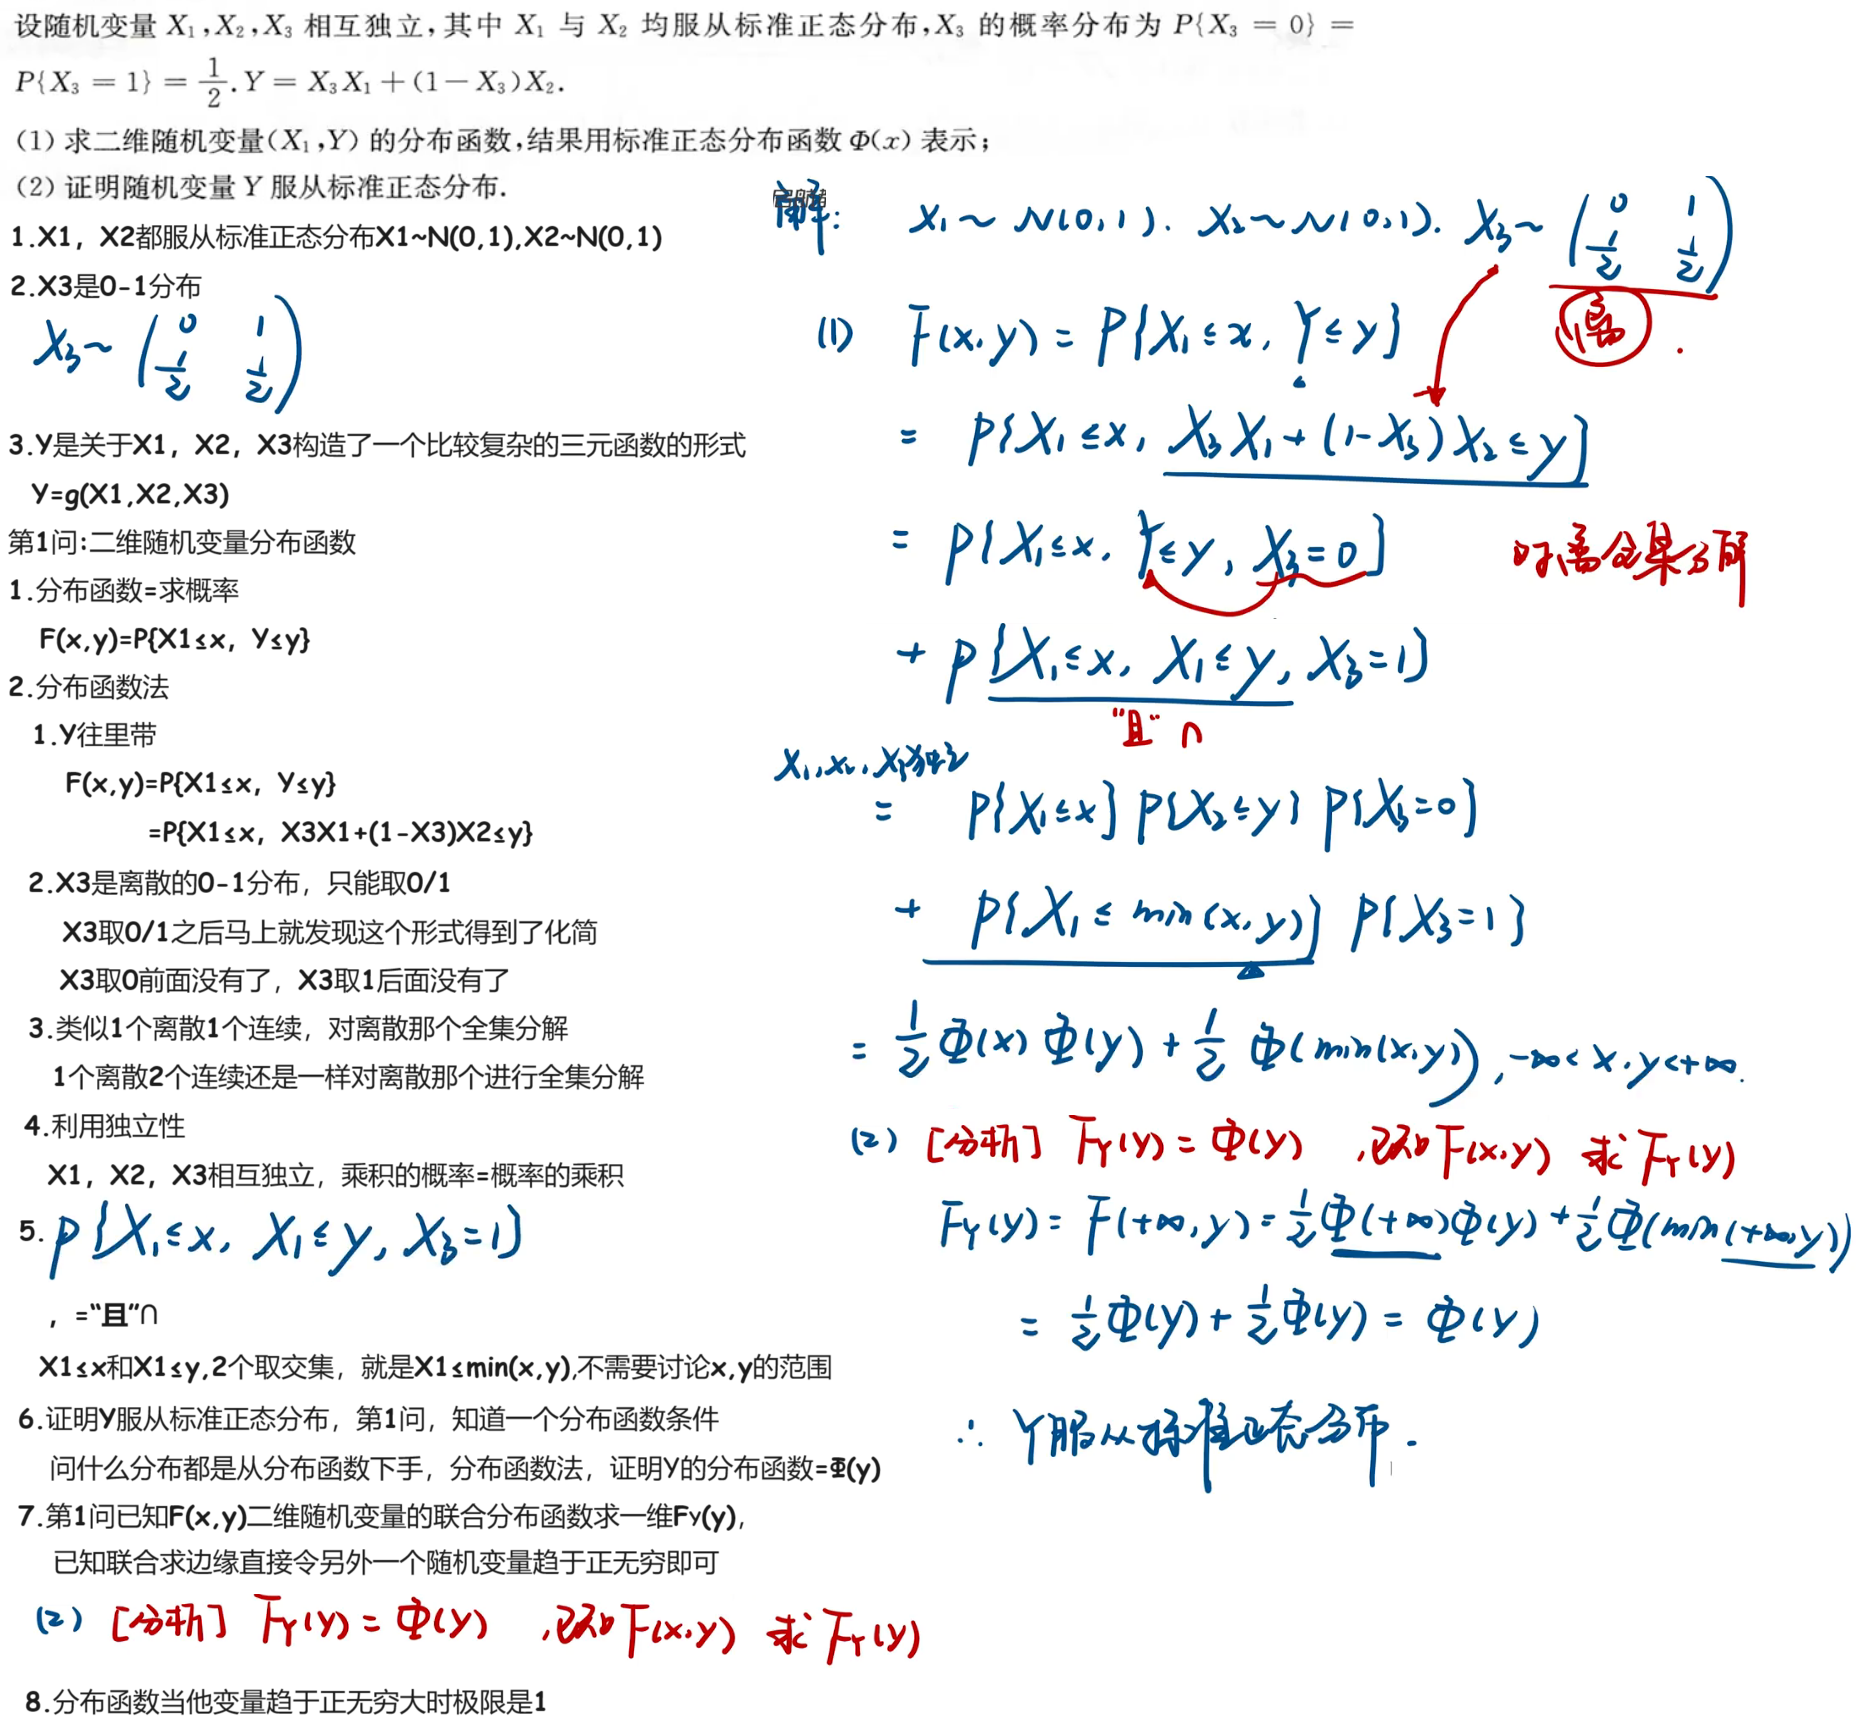 设随机变量 X₁,X₂,X₃ 相互独立,其中 X₁ 与 X₂ 均服从标准正态分布,X₃ 的概率分布为 P{X₃ = 0} =
P{X₃ = 1} = 1/2. Y = X₃X₁ + (1 − X₃)X₂.
(1) 求二维随机变量(X₁,Y) 的分布函数,结果用标准正态分布函数 Φ(x) 表示;
(2) 证明随机变量 Y 服从标准正态分布.
1.X1，X2都服从标准正态分布X1~N(0,1),X2~N(0,1)
2.X3是0-1分布
X₃ ~ (0 1; 1/2 1/2)
3.Y是关于X1，X2，X3构造了一个比较复杂的三元函数的形式
Y=g(X1,X2,X3)
第1问:二维随机变量分布函数
1.分布函数=求概率
F(x,y)=P{X1≤x，Y≤y}
2.分布函数法
1.Y往里带
F(x,y)=P{X1≤x，Y≤y}
=P{X1≤x，X3X1+(1-X3)X2≤y}
2.X3是离散的0-1分布，只能取0/1
X3取0/1之后马上就发现这个形式得到了化简
X3取0前面没有了，X3取1后面没有了
3.类似1个离散1个连续，对离散那个全集分解
1个离散2个连续还是一样对离散那个进行全集分解
4.利用独立性
X1，X2，X3相互独立，乘积的概率=概率的乘积
5. P{X₁≤x, X₁≤y, X₃=1}
，="且"∩
X1≤x和X1≤y,2个取交集，就是X1≤min(x,y),不需要讨论x,y的范围
6.证明Y服从标准正态分布，第1问，知道一个分布函数条件
问什么分布都是从分布函数下手，分布函数法，证明Y的分布函数=Φ(y)
7.第1问已知F(x,y)二维随机变量的联合分布函数求一维Fy(y),
已知联合求边缘直接令另外一个随机变量趋于正无穷即可
(2) [分析] F_Y(y) = Φ(y) ,已知F(x,y) 求 F_Y(y)
8.分布函数当他变量趋于正无穷大时极限是1
解: X₁ ~ N(0,1). X₂ ~ N(0,1). X₃ ~ (0 1; 1/2 1/2)
离.
(1) F(x,y) = P{X₁≤x, Y≤y}
= P{X₁≤x, X₃X₁+(1-X₃)X₂≤y}
= P{X₁≤x, Y≤y, X₃=0} 对离全集分解
+ P{X₁≤x, X₁≤y, X₃=1}
"且" ∩
X₁,X₂,X₃独立
= P{X₁≤x} P{X₂≤y} P{X₃=0}
+ P{X₁≤min(x,y)} P{X₃=1}
= 1/2 Φ(x) Φ(y) + 1/2 Φ(min(x,y)), -∞<x,y<+∞.
(2) [分析] F_Y(y) = Φ(y) ,已知F(x,y) 求 F_Y(y)
F_Y(y) = F(+∞,y) = 1/2 Φ(+∞)Φ(y) + 1/2 Φ(min(+∞,y))
= 1/2 Φ(y) + 1/2 Φ(y) = Φ(y)
∴ Y服从标准正态分布.